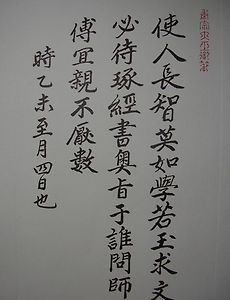 使人長智莫如學若玉求文
必待琢經書奧旨于誰問師
傅宜親不厭數
時乙未至月四日也